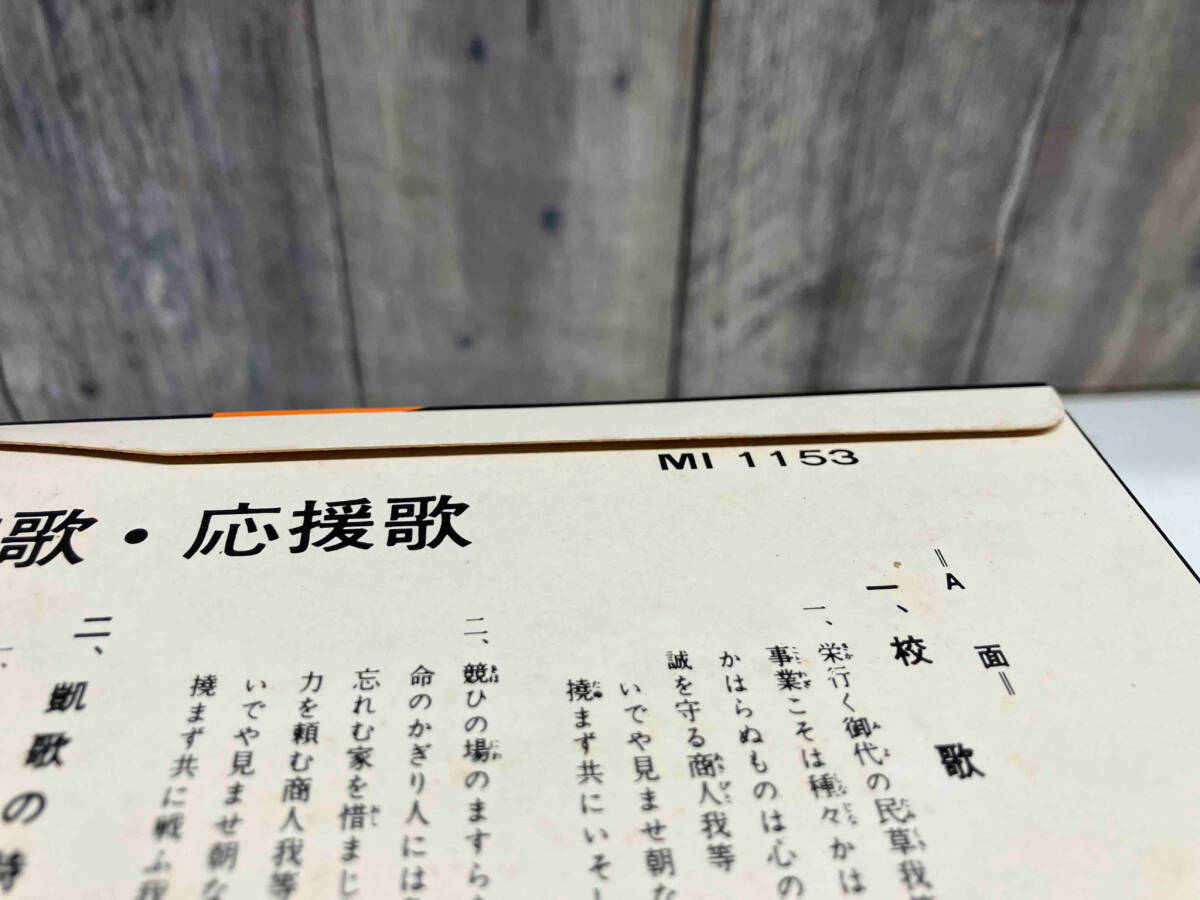 MI 1153
歌・応援歌
=A面=
一、校歌
一、栄行く御代の民草我
事業こそは種々かは
かはらぬものは心の
誠を守る商人我等
いでや見ませ朝な
撓まず共にいそし
二、競ひの場のますら
命のかぎり人には
忘れむ家を惜まじ
力を頼む商人我等
いでや見ませ朝な
撓まず共に戦ふ我
二、凱歌の
一、